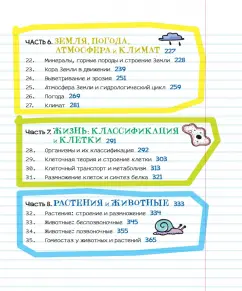 ЧАСТЬ 6. ЗЕМЛЯ, ПОГОДА,
АТМОСФЕРА и КЛИМАТ 227
22. Минералы, горные породы и строение Земли 228
23. Кора Земли в движении 239
24. Выветривание и эрозия 251
25. Атмосфера Земли и гидрологический цикл 259
26. Погода 269
27. Климат 281
ЧАСТЬ 7. ЖИЗНЬ: КЛАССИФИКАЦИЯ
и КЛЕТКИ 291
28. Организмы и их классификация 292
29. Клеточная теория и строение клетки 303
30. Клеточный транспорт и метаболизм 313
31. Размножение клеток и синтез белка 321
ЧАСТЬ 8. РАСТЕНИЯ и ЖИВОТНЫЕ 333
32. Растения: строение и размножение 334
33. Животные: беспозвоночные 345
34. Животные: позвоночные 355
35. Гомеостаз у животных и растений 365